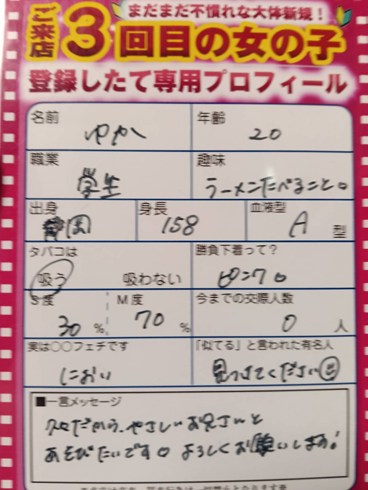 まだまだ不慣れな大体新規！
ご来店3回目の女の子
登録したて専用プロフィール
名前 ゆか
年齢 20
職業 学生
趣味 ラーメンたべること。
出身 静岡
身長 158
血液型 A 型
タバコは 吸う 吸わない
勝負下着って？
S度 30 %
M度 70 %
今までの交際人数 0 人
実は○○フェチです におい
「似てる」と言われた有名人 見つけてください
■一言メッセージ
やさしいお兄さんと
あそびたいです。よろしくお願いします！